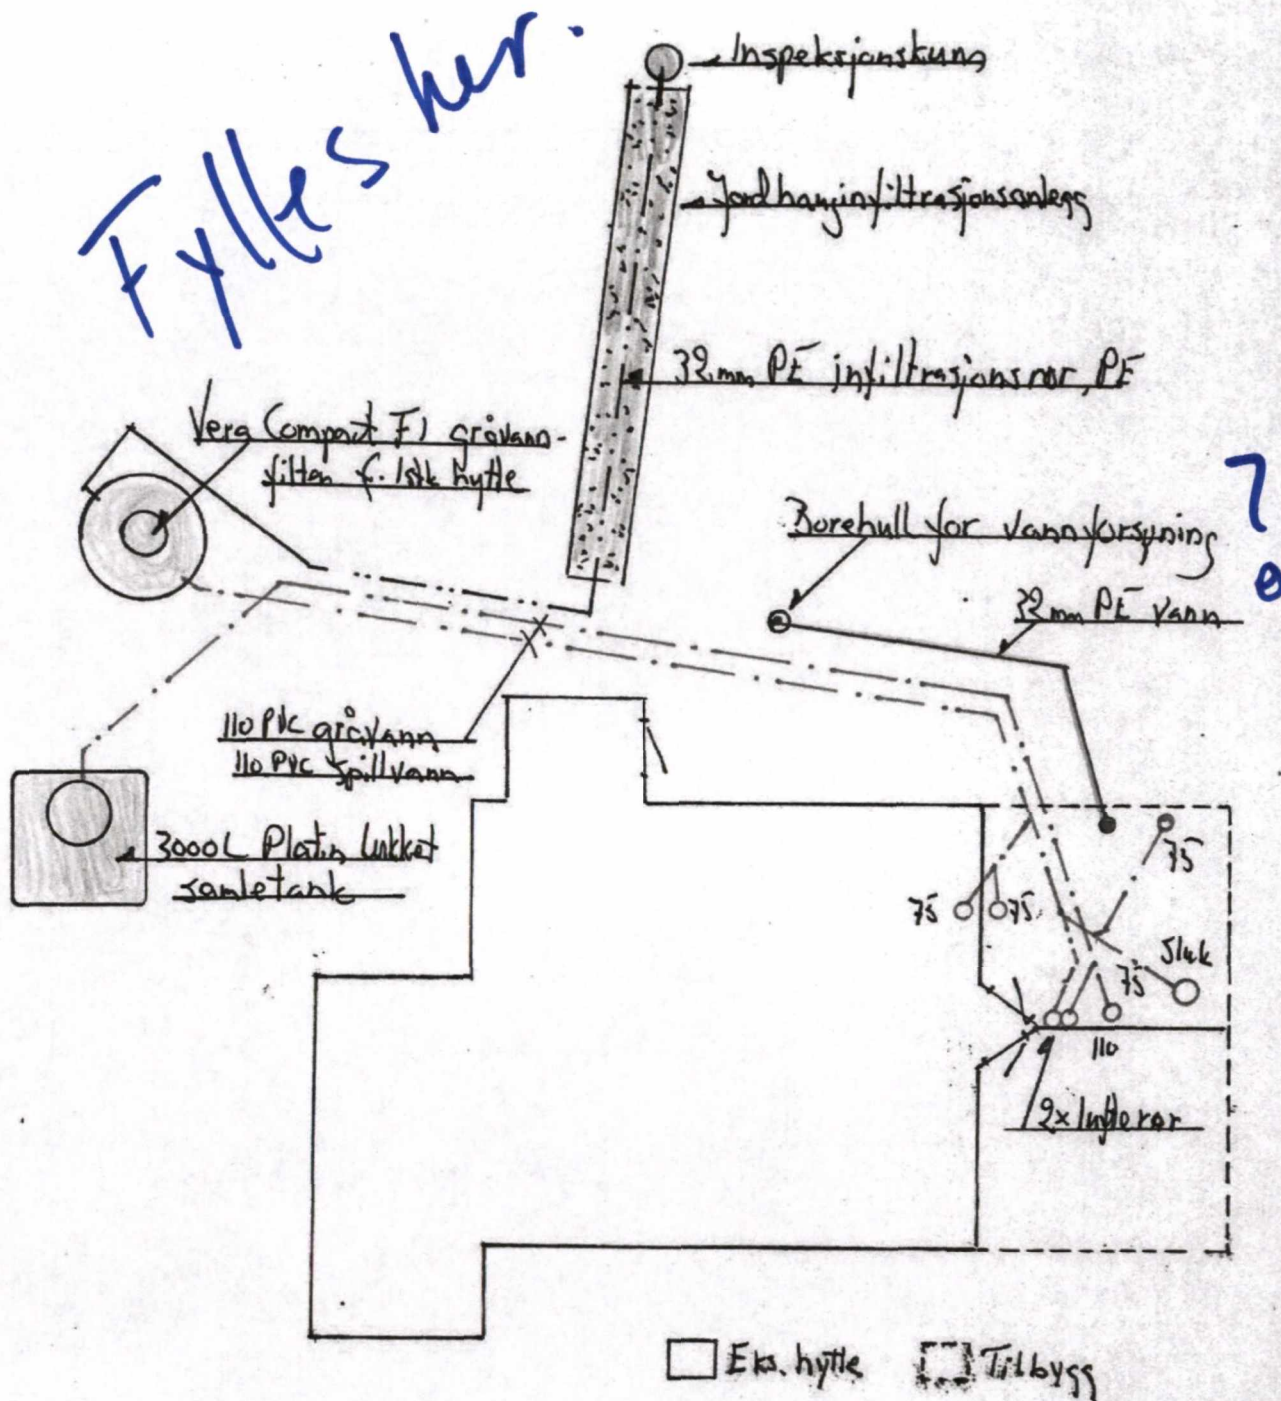 Fylles her.
Inspeksjonskum
Jordhauginfiltrasjonsanlegg
32 mm PE infiltrasjonsrør, PE
Vera Compact F1 gråvann-
filter f. 1stk hytte
Borehull for vannforsyning
32 mm PE vann
110 PVC gråvann
110 PVC spillvann
3000L Platin lukket
samletank
75
75
75
Sluk
75
110
2x lufterør
Eks. hytte
Tilbygg